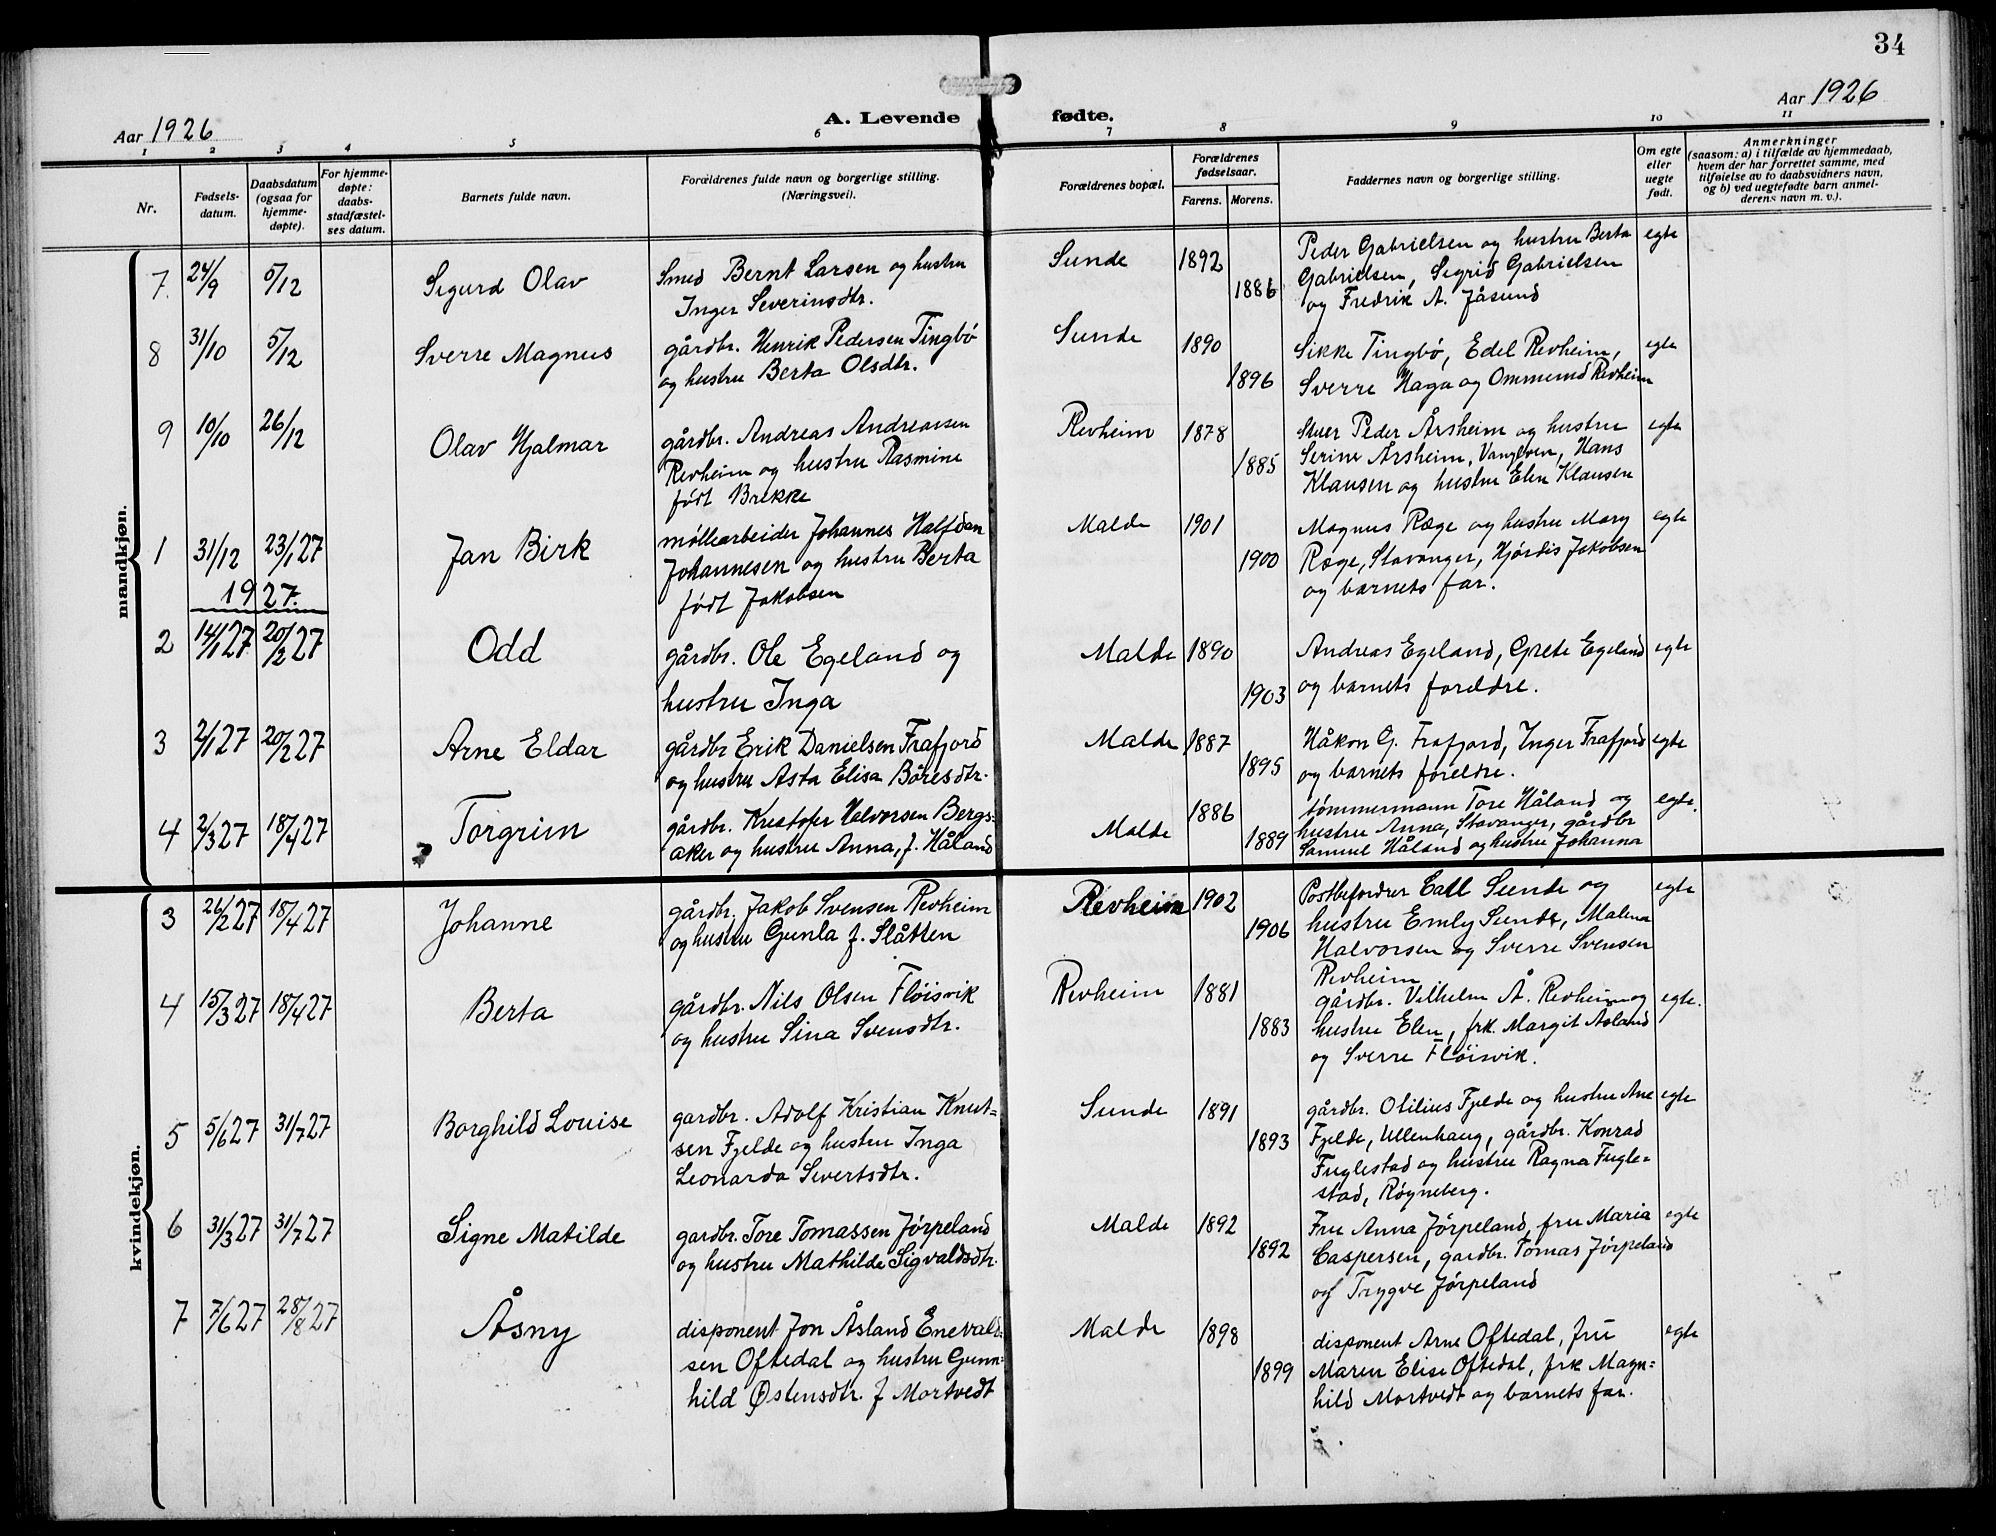 34
Aar 1926
A. Levende fødte.
Aar 1926
1 2 3 4 5 6 7 8 9 10 11
Nr.
Fødsels-
datum.
Daabsdatum
(ogsaa for
hjemme-
døpte).
For hjemme-
døpte:
daabs-
stadfæstel-
ses datum.
Barnets fulde navn.
Forældrenes fulde navn og borgerlige stilling.
(Næringsvei).
Forældrenes bopæl.
Forældrenes
fødselsaar.
Farens. Morens.
Faddernes navn og borgerlige stilling.
Om egte
eller
uegte
født.
Anmerkninger
(saasom: a) i tilfælde av hjemmedaab,
hvem der har forrettet samme, med
tilføielse av to daabsvidners navn,
og b) ved uegtefødte barn anmel-
derens navn m. v.).
mandkjøn.
7. 24/9 5/12 Sigurd Olav
Smed Bernt Larsen og hustru
Inger Severinsdtr.
Sunde 1892 1886
Peder Gabrielsen og hustru Berta
Gabrielsen, Sigrid Gabrielsen
og Fredrik A. Jåsund
egte
8 31/10 5/12 Sverre Magnus
gårdbr. Henrik Pedersen Tingbö
og hustru Berta Olsdtr.
Sunde 1890 1896
Sikke Tingbö, Edel Revheim,
Sverre Haga og Ommund Revheim
egte
9 10/10 26/12 Olav Hjalmar
gårdbr. Andreas Andreassen
Revheim og hustru Rasmine
født Brekke
Revheim 1878 1885
Stuer Peder Årsheim og hustru
Serine Årsheim, Hans
Klausen og hustru Elen Klausen
egte
1 31/12 23/1 27 Jan Birk
møllearbeider Johannes Halfdan
Johannesen og hustru Berta
født Jakobsen
Malde 1901 1900
Magnus Ræge og hustru Mary
Ræge, Stavanger, Hjördis Jakobsen
og barnets far.
egte
1927.
2 14/1 27 20/2 27 Odd
gårdbr. Ole Egeland og
hustru Inga
Malde 1890 1903
Andreas Egeland, Grete Egeland
og barnets foreldre.
egte
3 2/1 27 20/2 27 Arne Eldar
gårdbr Erik Danielsen Frafjord
og hustru Asta Elisa Båresdtr.
Malde 1887 1895
Håkon G. Frafjord, Inger Frafjord
og barnets foreldre.
egte
4 2/3 27 18/4 27 Torgrim
gårdbr. Kristofer Halvorsen Bergs=
aker og hustru Anna, f. Håland
Malde 1886 1889
tömmermann Tore Håland og
hustru Anna, Stavanger, gårdbr
Samuel Håland og hustru Johanna
egte.
kvindekjøn.
3 26/2 27 18/4 27 Johanne
gårdbr. Jakob Svensen Revheim
og hustru Gunla f. Slåtten
Revheim 1902 1906
Postbefordrer Call Sunde og
hustru Emly Sunde, Malena
Halvorsen og Sverre Svensen
Revheim
egte
4 15/3 27 18/4 27 Berta
gårdbr. Nils Olsen Flöisvik
og hustru Sina Svensdtr.
Revheim 1881 1883
gårdbr. Vilhelm Å. Revheim og
hustru Elen, frk. Margit Åsland
og Sverre Flöisvik.
egte.
5 5/6 27 31/7 27 Borghild Louise
gardbr. Adolf Kristian Knut=
sen Fjelde og hustru Inga
Leonarda Sivertsdtr.
Sunde 1891 1893
gårdbr. Otilius Fjelde og hustru Ane
Fjelde, Ullenhaug, gårdbr. Konrad
Fuglestad og hustru Ragna Fugle=
stad, Röyneberg.
egte
6 31/3 27 31/7 27 Signe Matilde
gardbr. Tore Tomassen Jörpeland
og hustru Mathilde Sigvaldsdtr.
Malde 1892 1892
Fru Anna Jörpeland, fru Maria
Caspersen, gardbr. Tomas Jörpeland
og Trygve Jörpeland
egte
7 7/6 27 28/8 27 Åsny
disponent Jon Åsland Enevald=
sen Oftedal og hustru Gunn=
hild Østensdtr. f Mortvedt
Malde 1898 1899
disponent Arne Oftedal, fru
Maren Elise Oftedal, frk Magn=
hild Mortvedt og barnets far.
egte